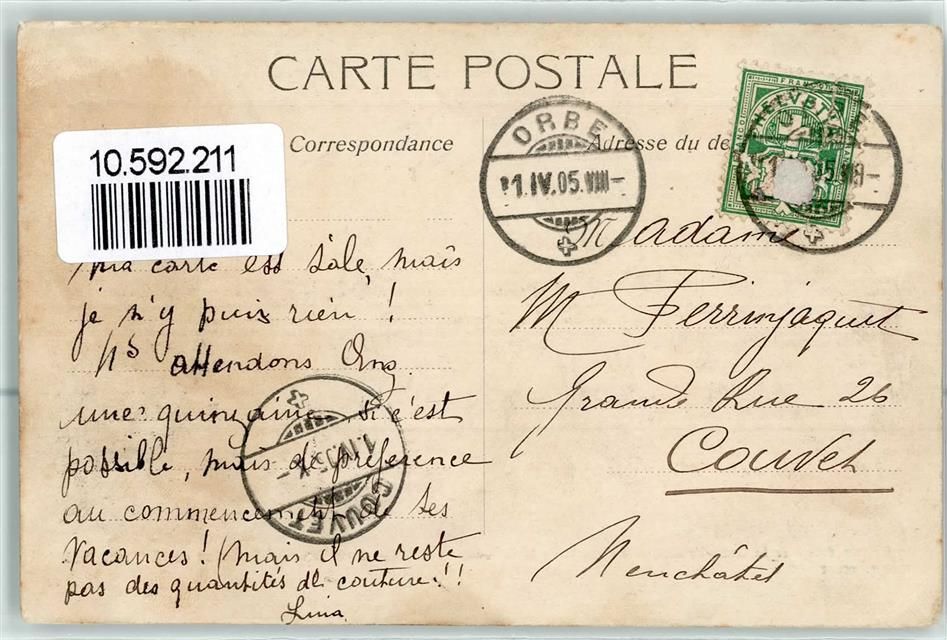 CARTE POSTALE
10.592.211
Correspondance
Adresse du de
ORBE
1.IV.05.VIII-
FRANCO
HELVETIA
05.VIII-
ma carte est sâle, mais
je n'y puis rien!
Ns attendons
une quinzaine, si c'est
possible, mais de préference
au commencement de ses
vacances! (mais il ne reste
pas des quantités de couture!!
Lina
1.IV.05
COUVET
Madame
M Perrinjaquet
Grande Rue 26
Couvet
Neuchâtel